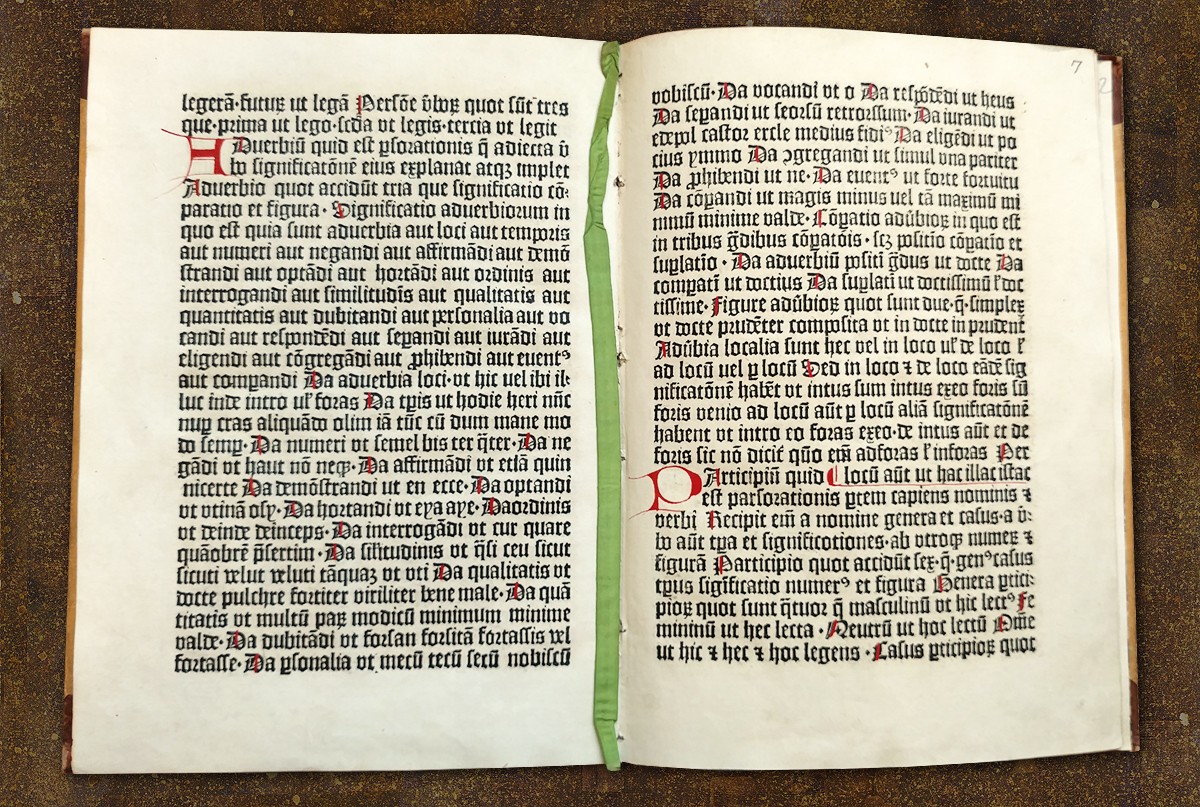 legerā·futuꝝ ut legā Persōe v̄boꝝ quot sūt tres
que·prima ut lego·scd̄a vt legis·tercia vt legit
ADuerbiū quid est ꝑsorationis q̄ adiecta v̄
bo significatōnē eius explanat atqꝫ implet
Aduerbio quot accidūt tria que significatio cō-
paratio et figura· Significatio aduerbiorum in
quo est quia sunt aduerbia aut loci aut temporis
aut numeri aut negandi aut affirmādi aut demō
strandi aut optādi aut hortādi aut ordinis aut
interrogandi aut similitudīs aut qualitatis aut
quantitatis aut dubitandi aut personalia aut vo
candi aut respondēdi aut seꝑandi aut iurādi aut
eligendi aut cōgregādi aut ꝓhibendi aut euentꝰ
aut comꝑandi Da aduerbia loci·vt hic uel ibi il-
luc inde intro ul̓ foras Da tꝑis ut hodie heri nūc
nuꝑ cras aliquādo olim iā tūc cū dum mane mo
do semꝑ·Da numeri vt semel bis ter q̄ter·Da ne
gādi vt haut nō neqꝫ·Da affirmādi vt etiā quin
nicerte Da demōstrandi ut en ecce·Da optandi
vt vtinā osy·Da hortandi vt eya aye·Da ordinis
vt deinde deinceps·Da interrogādi vt cur quare
quāobrē p̄sertim·Da sil̓itudinis vt q̄si ceu sicut
sicuti velut veluti tāquaꝫ vt vti Da qualitatis vt
docte pulchre fortiter viriliter bene male·Da quā
titatis vt multū paꝝ modicū minimum minime
valde·Da dubitādi vt forsan forsitā fortassis vel
fortasse·Da ꝑsonalia vt mecū tecū secū nobiscū
7
vobiscū·Da vocandi vt o Da respōdēdi ut heus
Da seꝑandi ut seorsū retrorsum·Da iurandi ut
edepol castor ercle medius fidiꝰ Da eligēdi ut po
cius ymmo Da ꝯgregandi ut simul vna pariter
Da ꝓhibendi ut ne·Da euentꝰ ut forte fortuitu
Da cōꝑandi ut magis minus uel tā maxīmū mi
nimū minime valde·Cōꝑatio adūbioꝝ in quo est
in tribus g̃dibus cōꝑatōis·scꝫ positio cōꝑatio et
suꝑlatio·Da aduerbiū positi g̃dus ut docte Da
comꝑati ut doctius Da suꝑlati ut doctissimū ł doc
tissime·Figure adūbioꝝ quot sunt due·q̄·simplex
vt docte prudēter composita vt in docte in prudent̃
Adūbia localia sunt hec vel in loco ul̓ de loco ł
ad locū uel ꝑ locū Sed in loco ⁊ de loco eādē sig
nificatōnē habēt vt intus sum intus exeo foris sū
foris venio ad locū aūt ꝑ locū aliā significatōnē
habent vt intro eo foras exeo·de intus aūt et de
foris sic nō dicit̃ quō eīn adforas ł inforas Per
PArticipiū quid locū aūt ut hac illac istac
est parsorationis ꝑtem capiens nominis ⁊
verbi Recipit eīn a nomine genera et casus·a v̄-
bo aūt tꝑa et significotiones·ab vtroqꝫ numeꝝ ⁊
figurā Participio quot accidūt sex·q̄·genꝰ casus
tꝑus significatio numerꝰ et figura Genera ꝑtici-
pioꝝ quot sunt q̄tuor q̄ masculinū vt hic lectꝰ Fe
mininū ut hec lecta·Neutrū ut hoc lectū Om̄e
ut hic ⁊ hec ⁊ hoc legens·Casus ꝑticipioꝝ quot